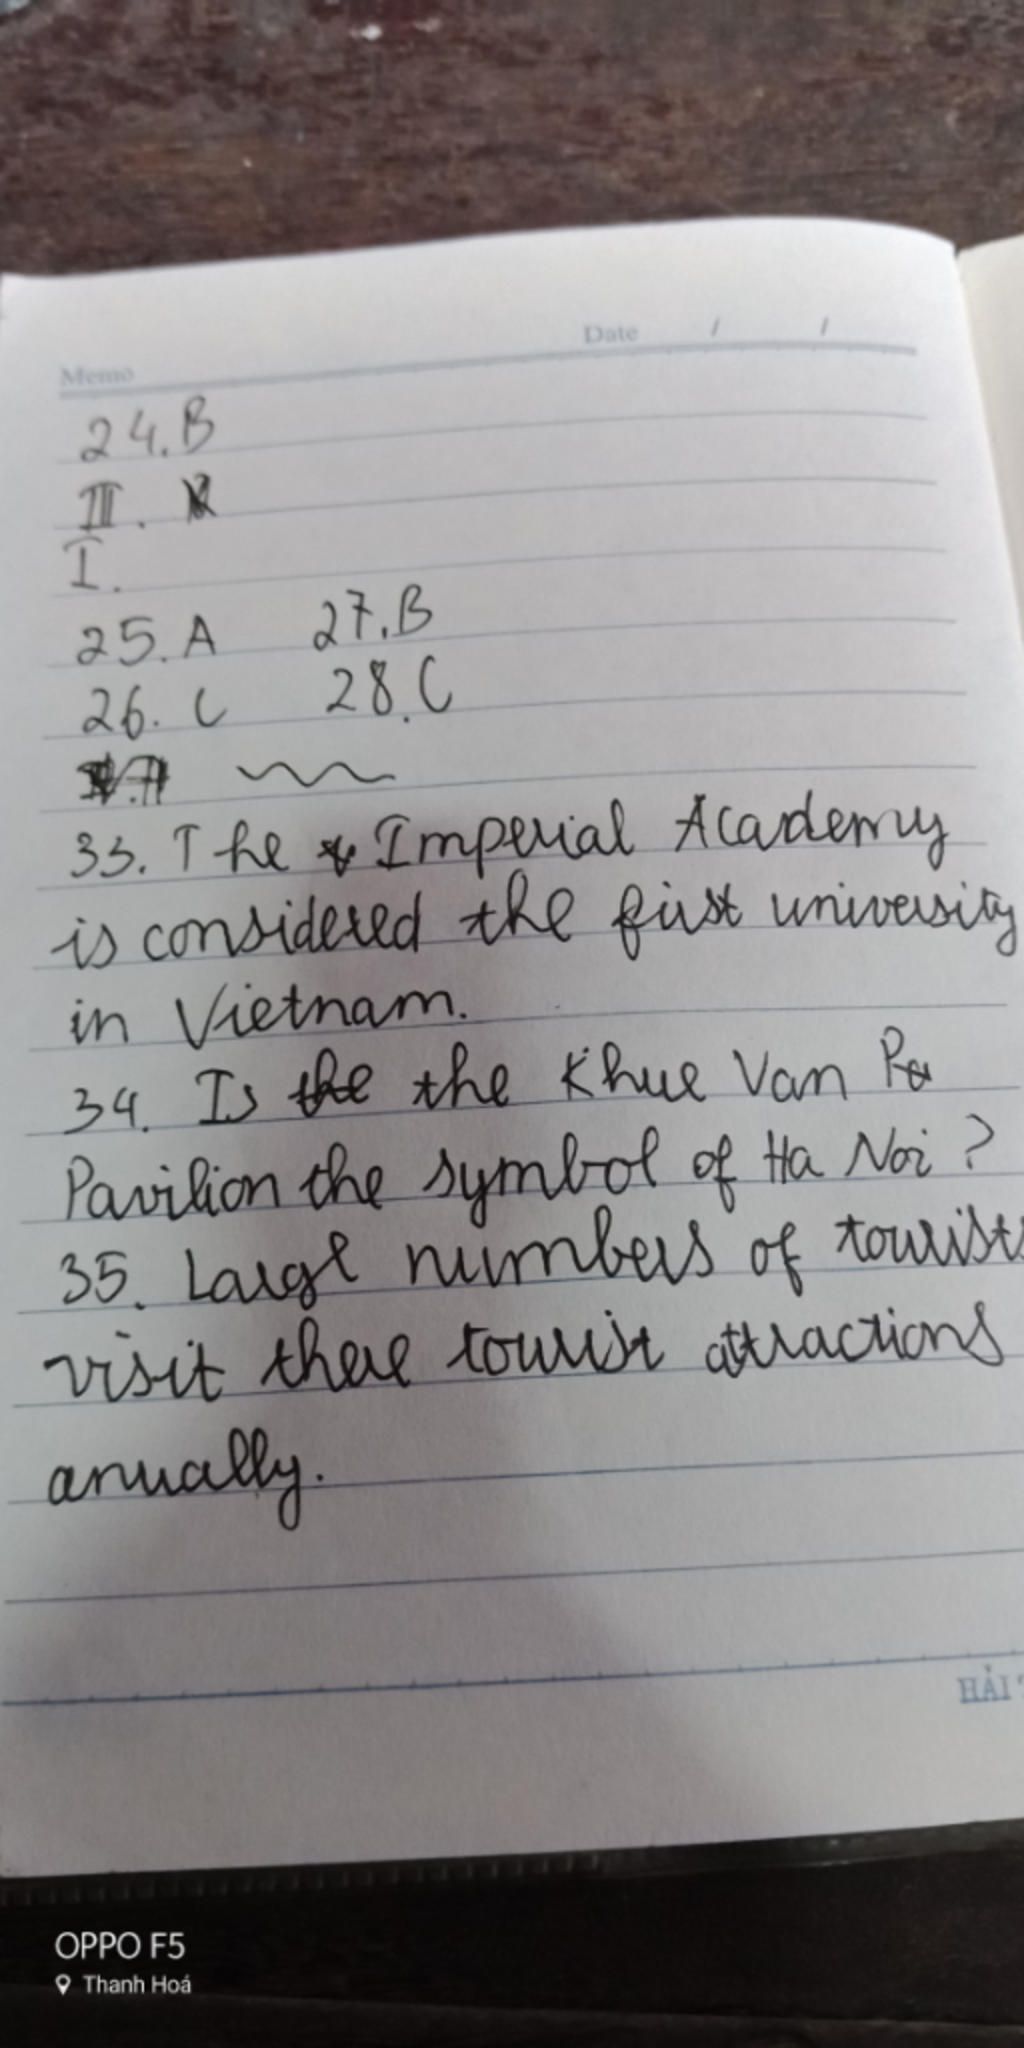 Memo Date / /
24. B
III.
I.
25. A 27. B
26. C 28. C
33. The Imperial Academy
is considered the first university
in Vietnam.
34. Is the the Khue Van Pa
Pavilion the symbol of Ha Noi?
35. Large numbers of tourists
visit there tourist attractions
anually.
HẢI
OPPO F5
Thanh Hoá